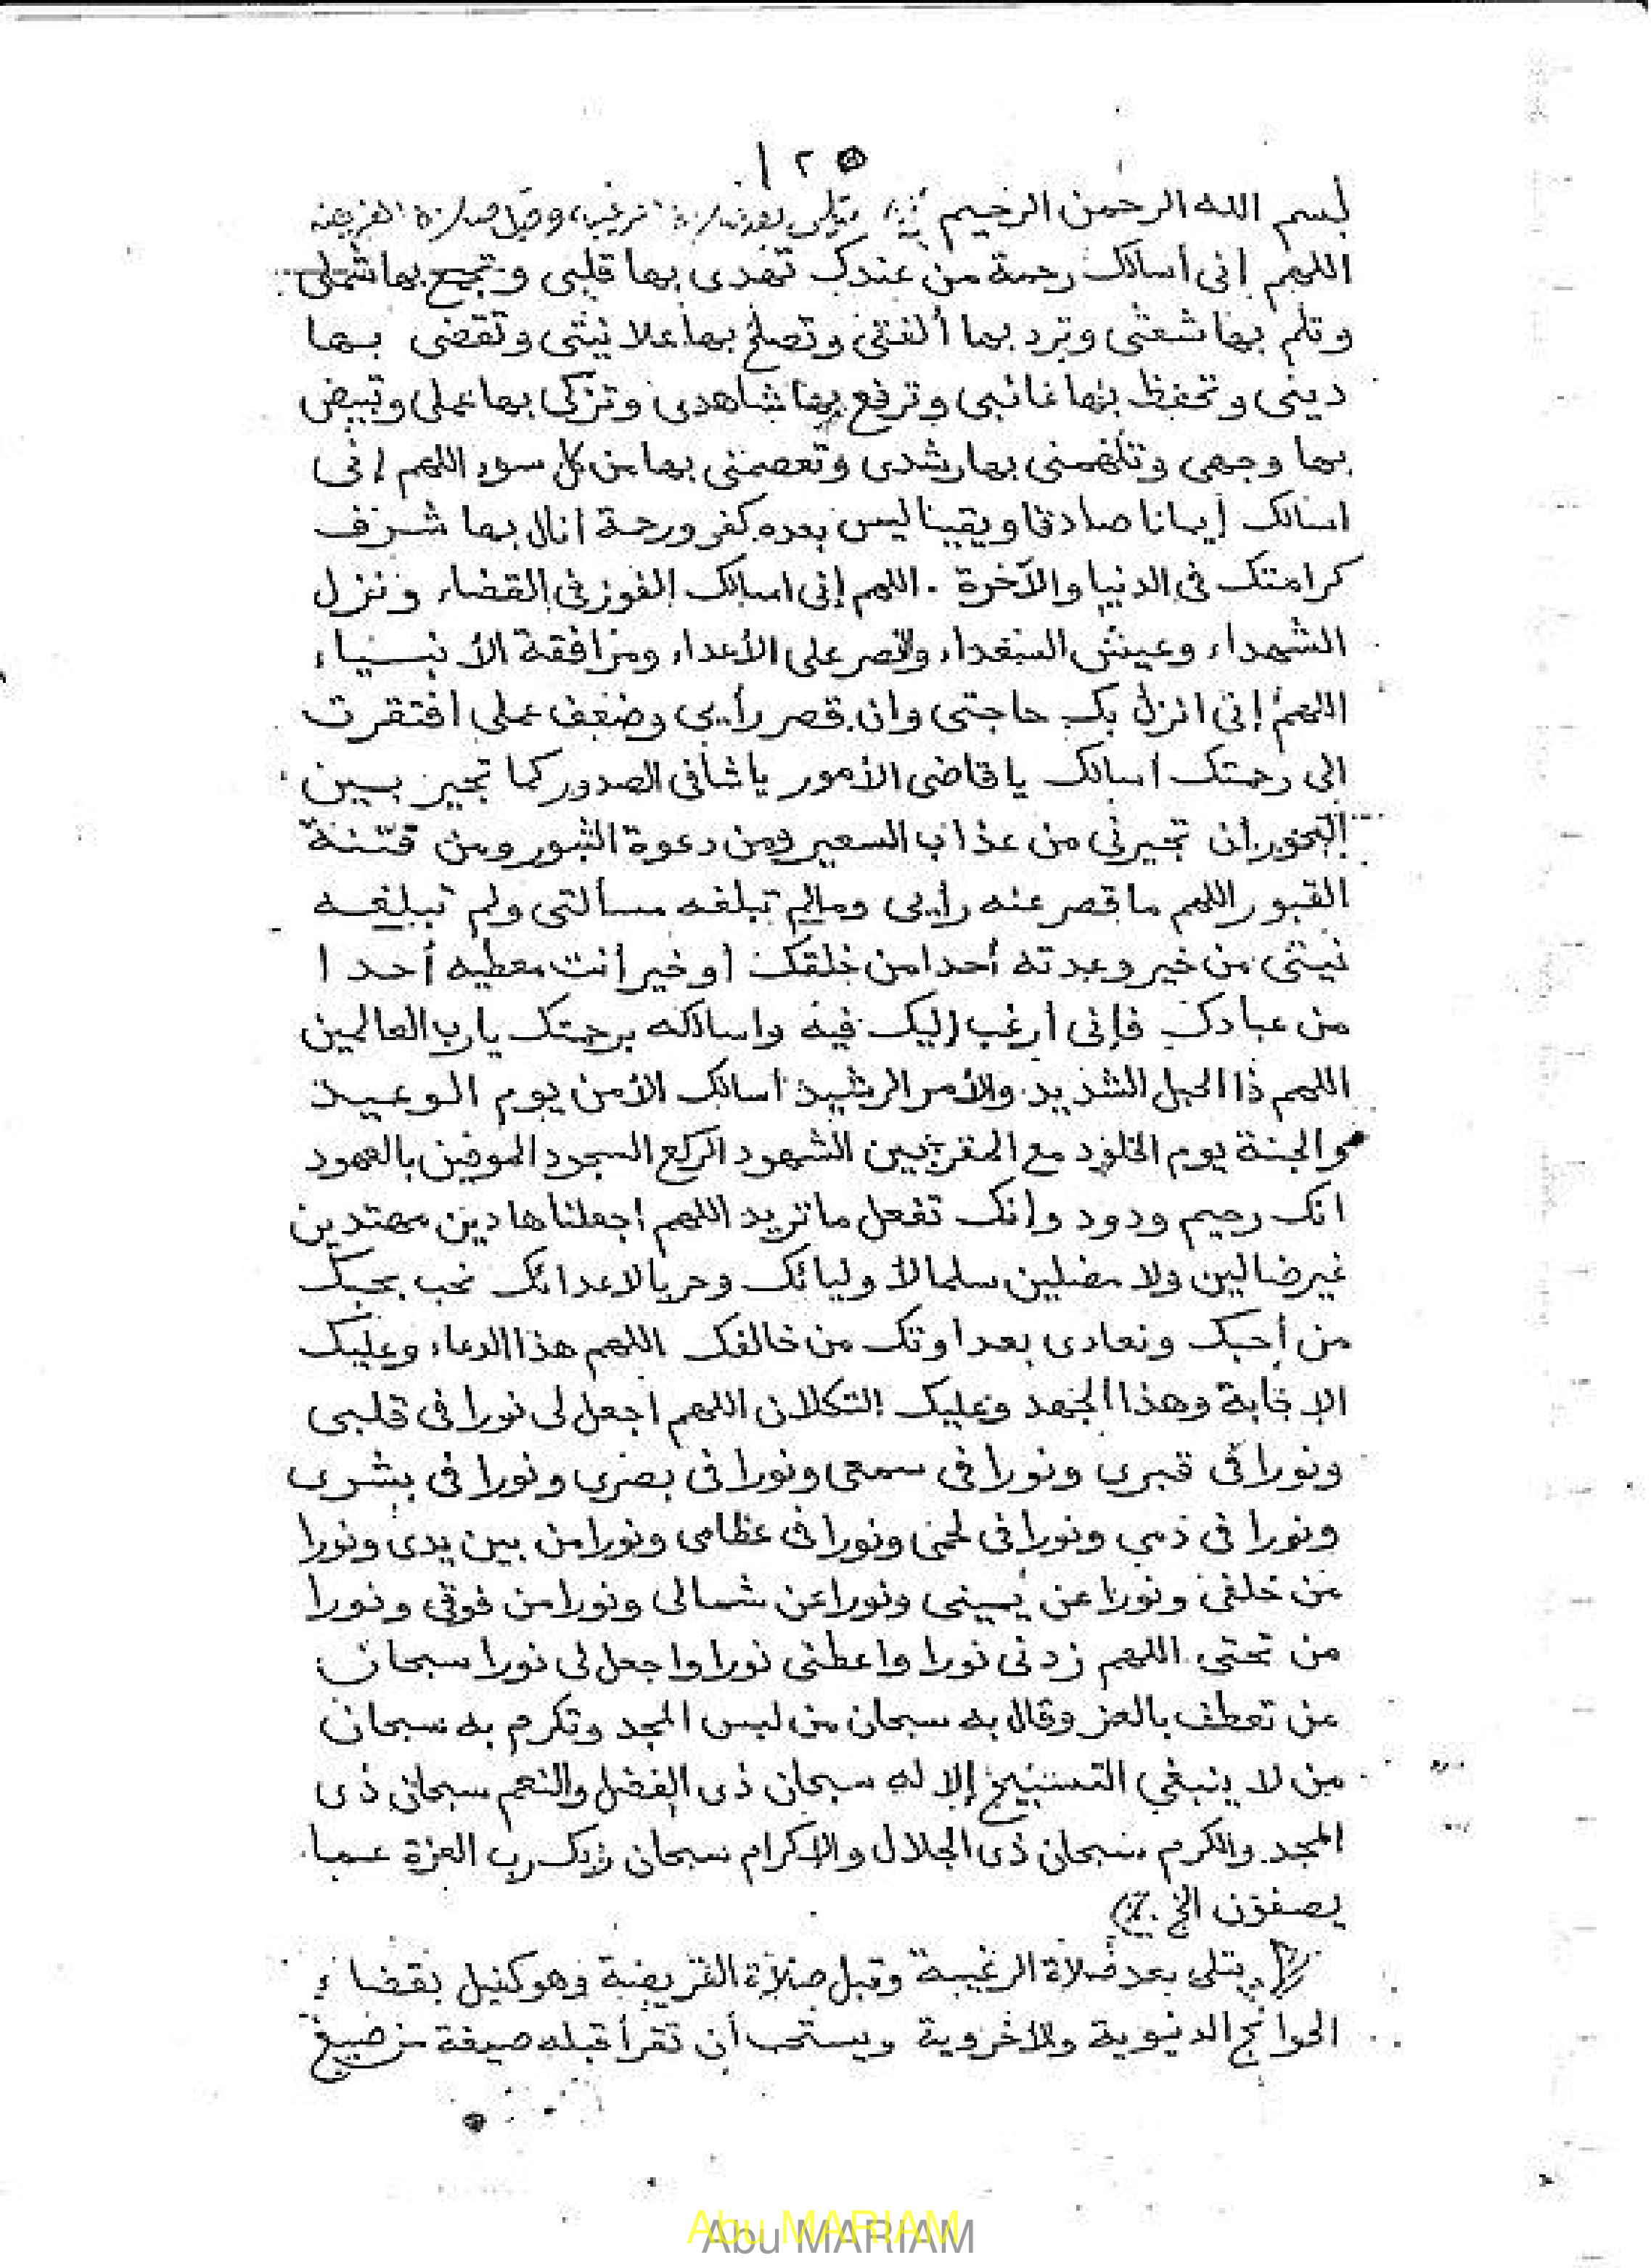 ١٢٥
بسم الله الرحمن الرحيم يتلى بعد صلاة الرغيبة وقبل صلاة الفريضة
اللهم إنى أسالك رحمة من عندك تهدى بها قلبى وتجمع بها شملى
وتلم بها شعثى وترد بها ألفتى وتصلح بها علانيتى وتقضى بها
دينى وتحفظ بها غائبى وترفع بها شاهدى وتزكى بها عملى وتبيض
بها وجهى وتلهمنى بها رشدى وتعصمنى بها من كل سوء اللهم إنى
اسالك إيمانا صادقا ويقينا ليس بعده كفر ورحمة أنال بها شرف
كرامتك فى الدنيا والآخرة . اللهم إنى اسالك الفوز فى القضاء ونزل
الشهداء وعيش السعداء والنصر على الأعداء ومرافقة الأنبياء
اللهم إنى انزل بك حاجتى وان قصر رأيى وضعف عملى افتقرت
الى رحمتك أسالك يا قاضى الأمور يا شافى الصدور كما تجير بين
البحور ان تجيرنى من عذاب السعير ومن دعوة الثبور ومن فتنة
القبور اللهم ما قصر عنه رأيى ومالم تبلغه مسألتى ولم تبلغه
نيتى من خير وعدته أحدا من خلقك او خير أنت معطيه أحدا
من عبادك فإنى أرغب إليك فيه واسالكه برحمتك يارب العالمين
اللهم ذا الحبل الشديد والأمر الرشيد أسالك الأمن يوم الوعيد
والجنة يوم الخلود مع المقربين الشهود الركع السجود الموفين بالعهود
انك رحيم ودود وإنك تفعل ما تريد اللهم اجعلنا هادين مهتدين
غير ضالين ولا مضلين سلما لأوليائك وحربا لاعدائك نحب بحبك
من أحبك ونعادى بعداوتك من خالفك اللهم هذا الدعاء وعليك
الإجابة وهذا الجهد وعليك التكلان اللهم اجعل لى نورا فى قلبى
ونورا فى قبرى ونورا فى سمعى ونورا فى بصرى ونورا فى بشرى
ونورا فى دمى ونورا فى لحمى ونورا فى عظامى ونورا من بين يدى ونورا
من خلفى ونورا عن يمينى ونورا عن شمالى ونورا من فوقى ونورا
من تحتى اللهم زدنى نورا واعطنى نورا واجعل لى نورا سبحان
من تعطف بالعز وقال به سبحان من لبس المجد وتكرم به سبحان
من لا ينبغي التسبيح إلا له سبحان ذى الفضل والنعم سبحان ذى
المجد والكرم سبحان ذى الجلال والإكرام سبحان ربك رب العزة عما
يصفون الخ
يتلى بعد صلاة الرغيبة وقبل صلاة الفريضة وهو كفيل بقضاء
الحوائج الدنيوية والأخروية ويستحب أن تقرأ قبله صيغة من صيغ
Abu MARIAM
Abu MARIAM